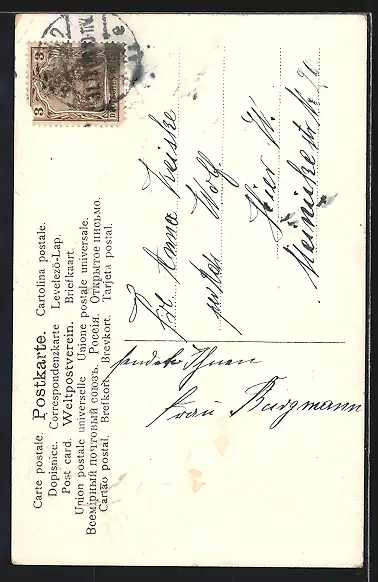 Carte postale. Postkarte. Cartolina postale.
Dopisnice. Correspondenzkarte Levelező-Lap.
Post card. Weltpostverein. Briefkaart.
Union postale universelle. Unione postale universale.
Всемірный почтовый союзъ. Россія. Открытое письмо.
Cartão postal. Brefkort. Brevkort. Tarjeta postal.
3 3
Anna
Wolf
Hier W.
sendet Ihnen
Frau Burgmann